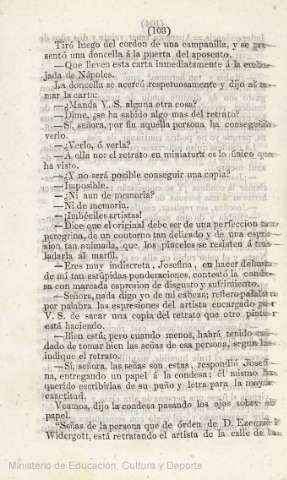 (103)
Tiró luego del cordon de una campanilla, y se pre-
sentó una doncella á la puerta del aposento.
—Que lleven esta carta inmediatamente á la emba-
jada de Nápoles.
La doncella se acercó respetuosamente y dijo al to-
mar la carta:
—¿Manda V. S. alguna otra cosa?
—Dime, ¿se ha sabido algo mas del retrato?
—Sí, señora, por fin aquella persona ha conseguido
verlo.
—¿Verlo, ó verla?
—A ella no: el retrato en miniatura es lo único que
ha visto.
—¿Y no será posible conseguir una copia?
—Imposible.
—¿Ni aun de memoria?
—Ni de memoria.
—¡Imbéciles artistas!
—Dice que el original debe ser de una perfeccion tan
peregrina, de un contorno tan delicado y de una espre-
sion tan animada, que los pinceles se resisten á tras-
ladarla al marfil.
—Eres muy indiscreta, Josefina, en hacer delante
de mí tan estúpidas ponderaciones, contestó la conde-
sa con marcada espresion de disgusto y sufrimiento.
—Señora, nada digo yo de mi cabeza; refiero palabra
por palabra las espresiones del artista encargado por
V. S. de sacar una copia del retrato que otro pintor
está haciendo.
—Bien está; pero cuando menos, habrá tenido cui-
dado de tomar bien las señas de esa persona, segun las
indique el retrato.
—Sí, señora, las señas son estas, respondió Josefi-
na, entregando un papel á la condesa: él mismo ha
querido escribirlas de su puño y letra para la mayor
exactitud.
Veamos, dijo la condesa pasando los ojos sobre el
papel.
"Señas de la persona que de órden de D.
Widergott, está retratando el artista de la calle de la
Ministerio de Educación, Cultura y Deporte